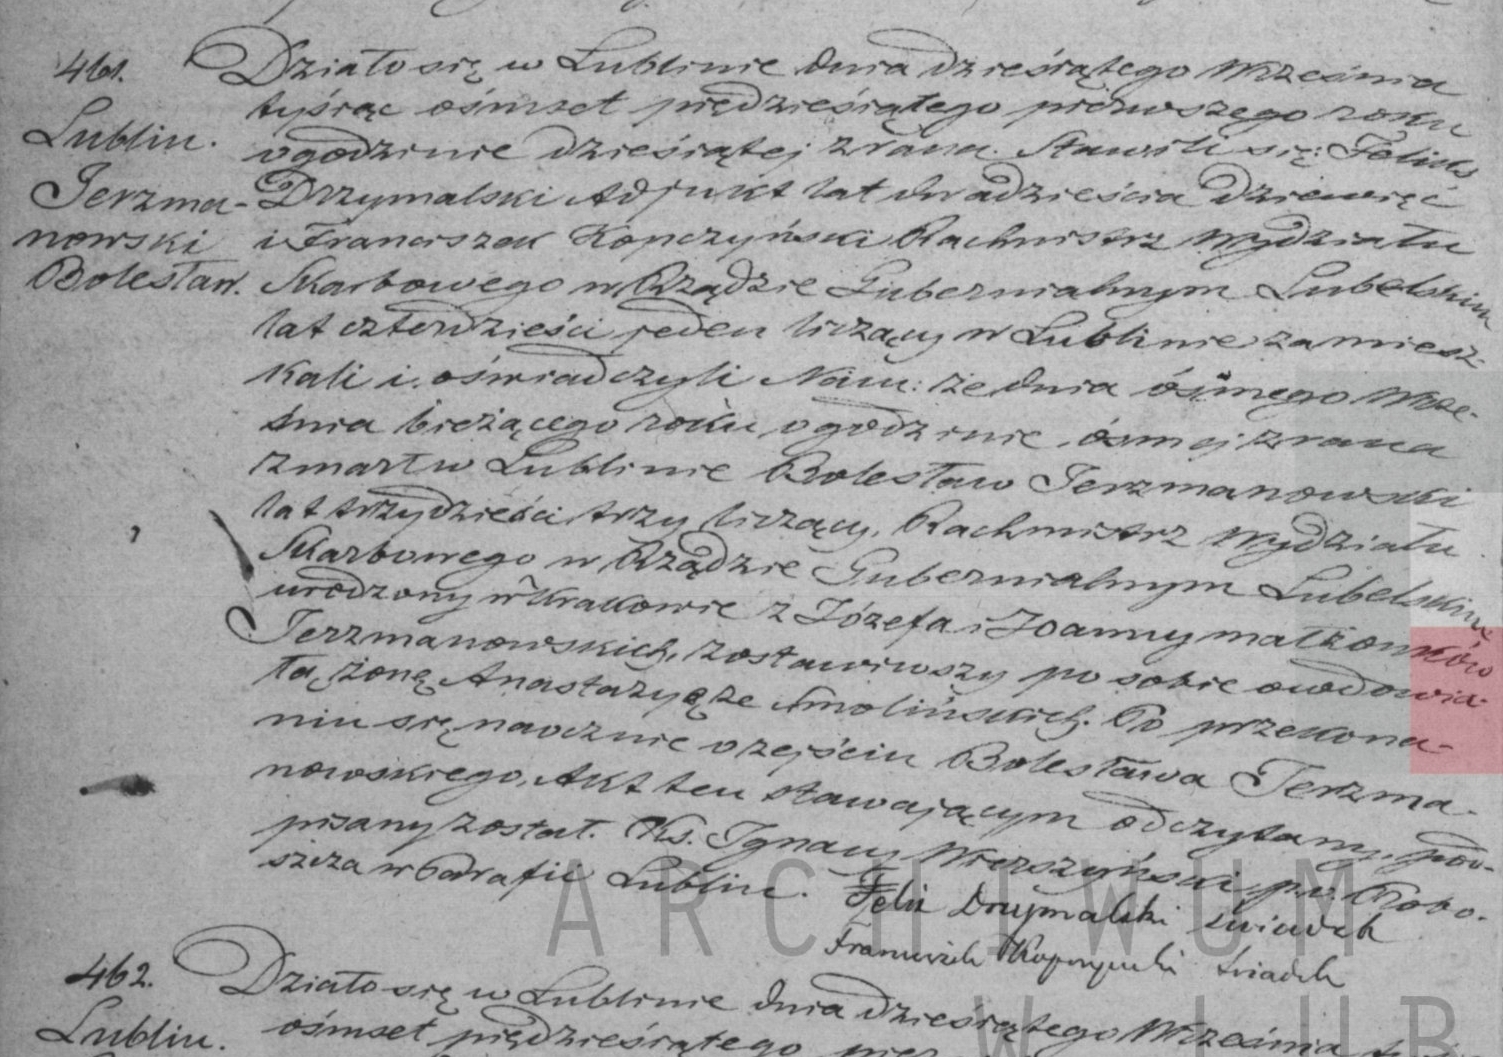 461.
Lublin.
Jerzma-
nowski
Bolesław.
Działo się w Lublinie dnia dziesiątego Września
tysiąc ośmset pięćdziesiątego pierwszego roku
o godzinie dziesiątej z rana. Stawili się: Felix
Drzymalski Adjunkt lat dwadzieścia dziewięć
i Franciszek Kopczyński Rachmistrz Wydziału
Skarbowego w Rządzie Gubernialnym Lubelskim
lat czterdzieści jeden liczący w Lublinie zamiesz-
kali i oświadczyli Nam: że dnia ósmego Wrze-
śnia bieżącego roku o godzinie ósmej z rana
zmarł w Lublinie Bolesław Jerzmanowski
lat trzydzieści trzy liczący, Rachmistrz Wydziału
Skarbowego w Rządzie Gubernialnym Lubelskim,
urodzony w Krakowie z Józefa i Joanny małżonków
Jerzmanowskich, zostawiwszy po sobie owdowia-
łą żonę Anastazyą ze Smolińskich. Po przekona-
niu się naocznie o zejściu Bolesława Jerzma-
nowskiego, Akt ten stawającym odczytany, pod-
pisany został. Ks. Ignacy Wierszyński p.o. Probo-
szcza w Parafii Lublin.
Felix Drzymalski świadek
Franciszek Kopczyński świadek
ARCHIWUM
462.
Lublin.
Działo się w Lublinie dnia dziesiątego Września
ośmset pięćdziesiątego
W LUB